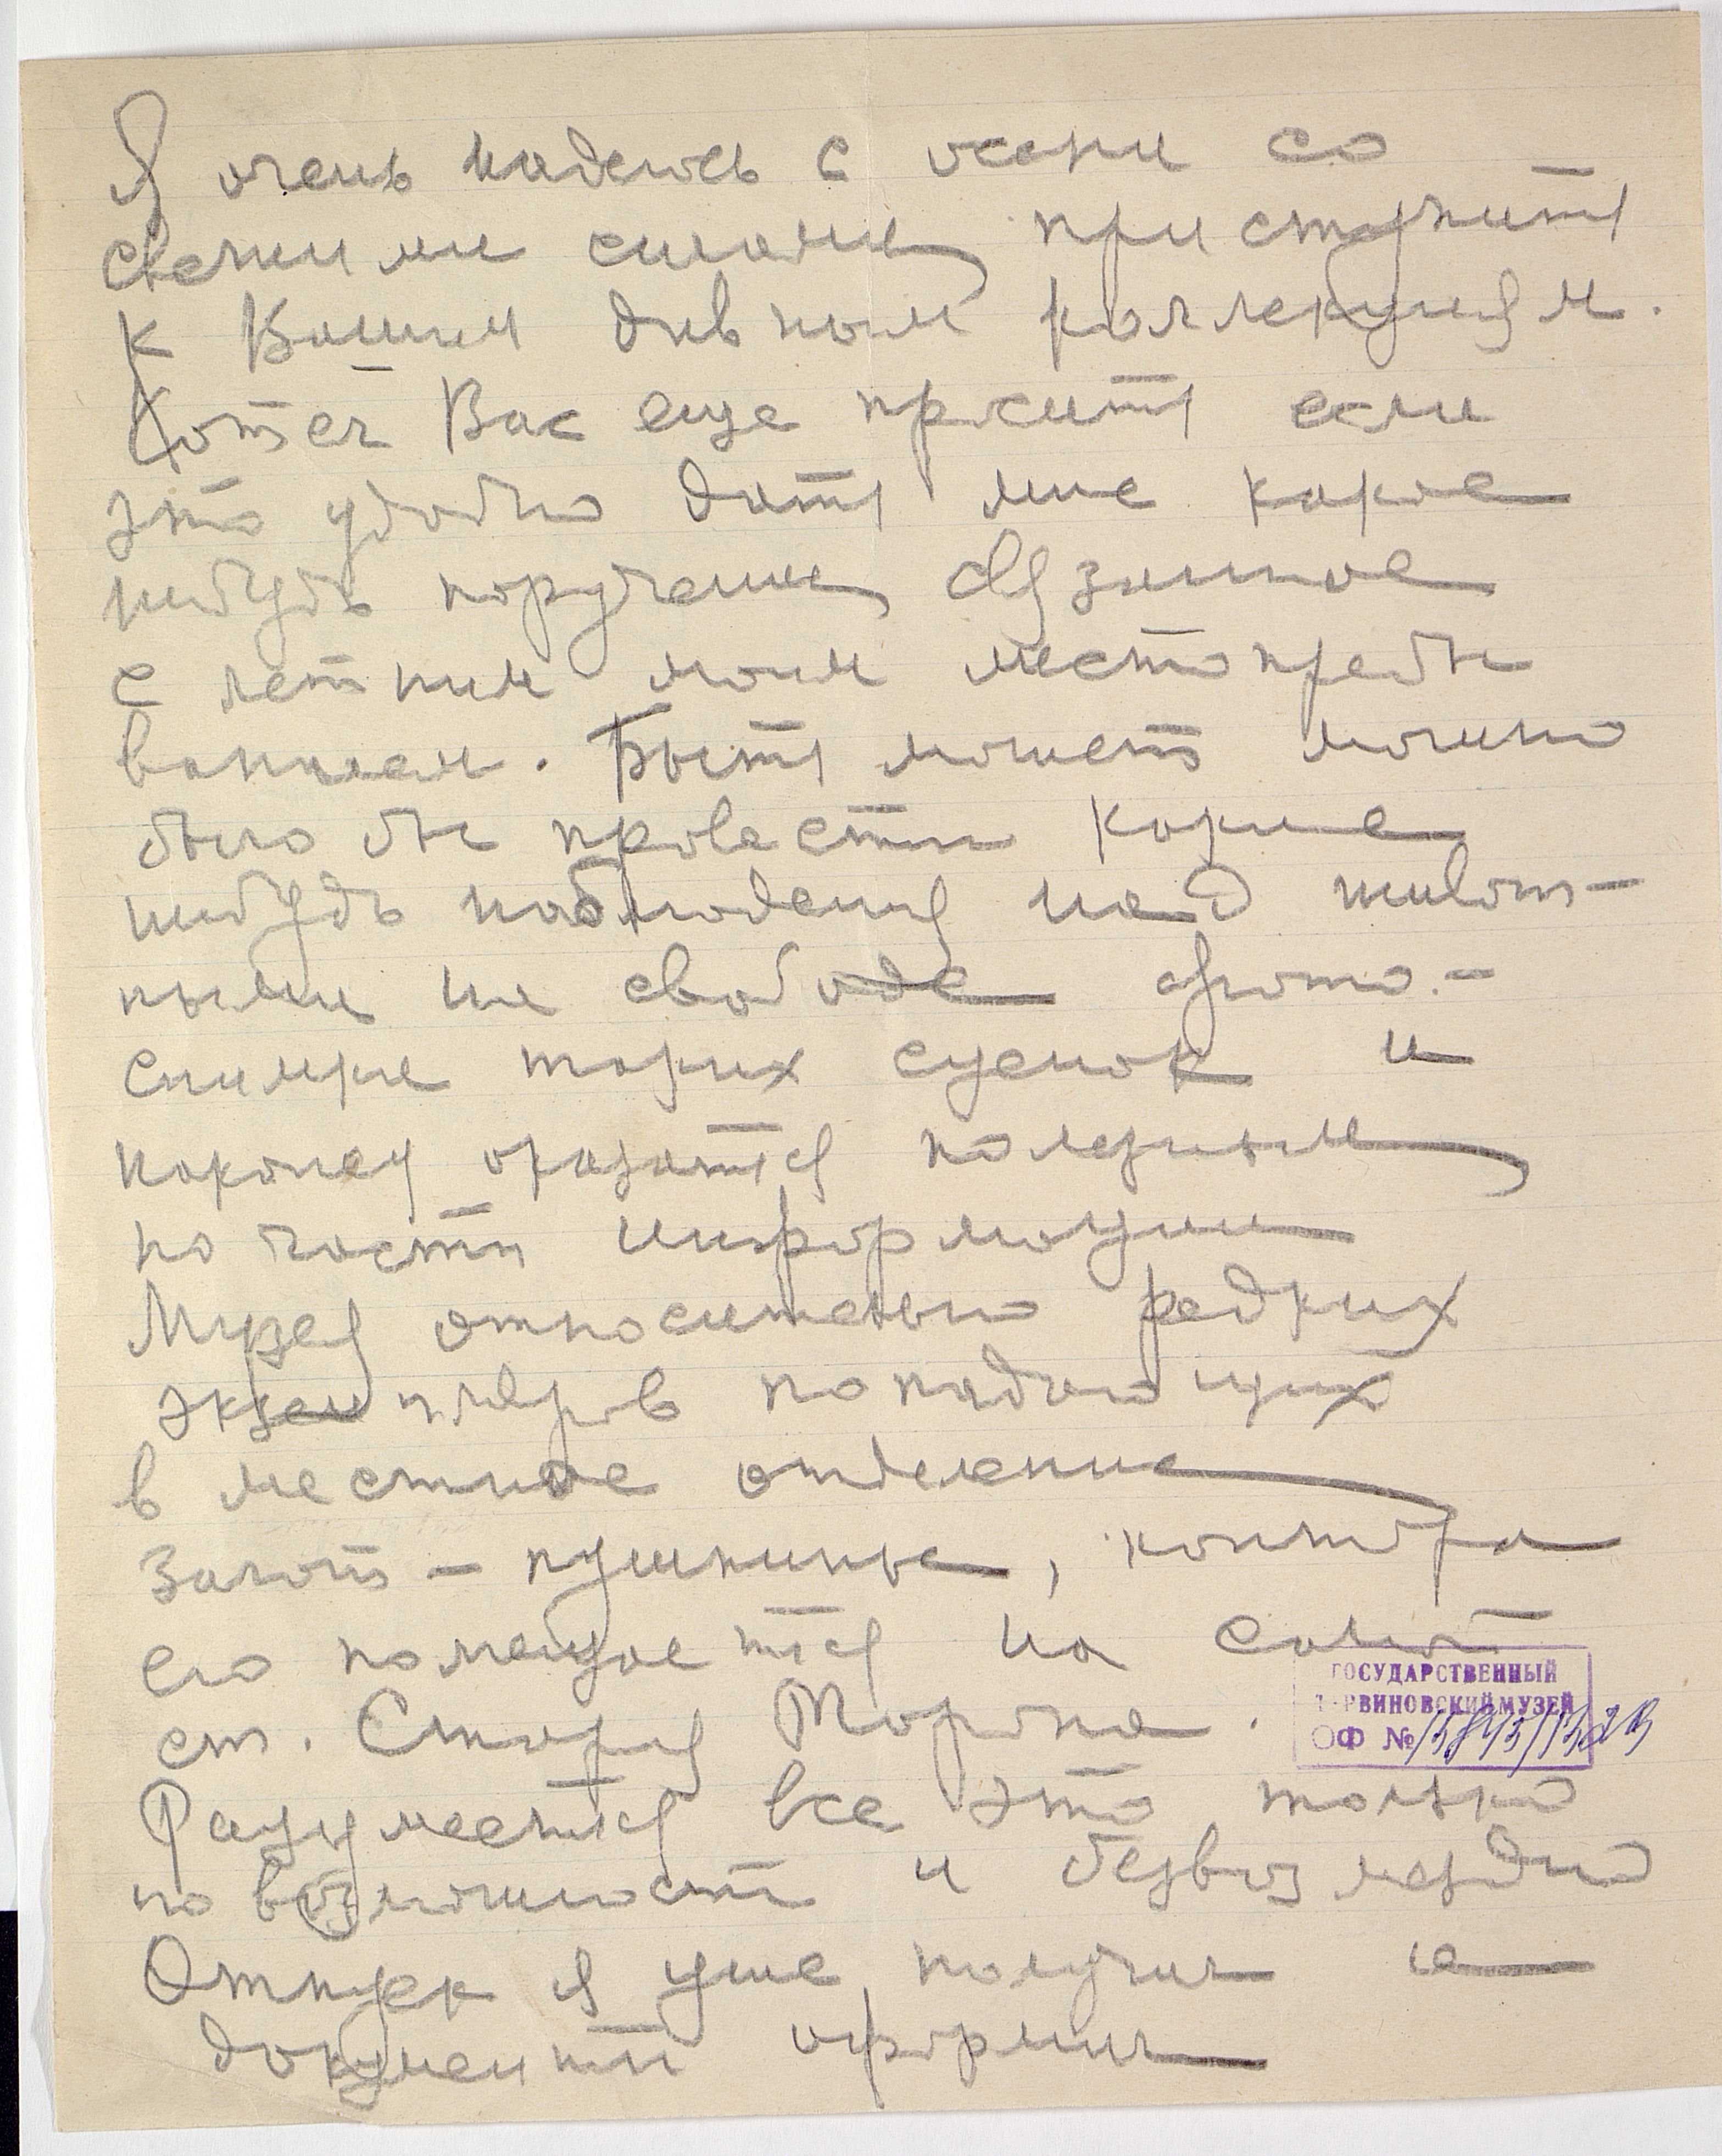 Я очень надеюсь с осени со
свежими силами приступить
к Вашим дивным коллекциям.
Хотел Вас еще просить если
это удобно дать мне какое
нибудь поручение связанное
с летним моим местопребы
ванием. Быть может можно
было бы провести какие
нибудь наблюдения над живот-
ными на свободе фото-
снимки таких сценок и
наконец оказаться полезным
по части информации
Музея относительно редких
экземпляров попадающих
в местное отделение
Загот-пушнины, контора
его помещается на самой
ст. Старая Торопа.
Разумеется все это только
по возможности и безвозмездно
Отпуск я уже получил и
документы оформил
ГОСУДАРСТВЕННЫЙ
ДАРВИНОВСКИЙ МУЗЕЙ
ОФ №